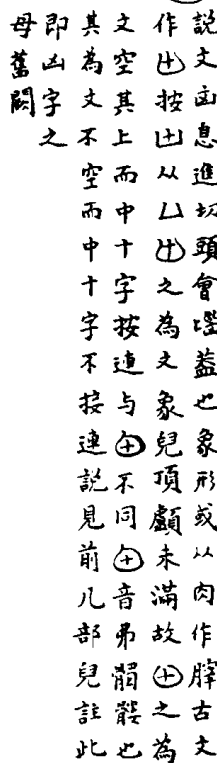 說文囟息進切頭會𡿺蓋也象形或从肉作膟古文
作𠙽按𠙽从凵𠙽之為文象兒頂顱未滿故𠙽之為
文空其上而中十字按連与⊕不同⊕音弗髑髏也
其為文不空而中十字不接連說見前几部兒註此
即凶字之
母舊闕